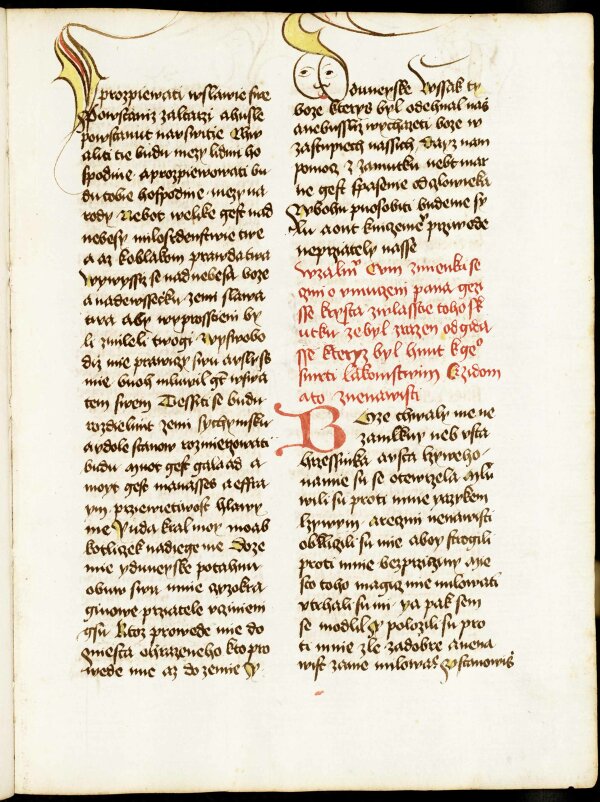 prozpiewati wslawie swe
Powstaniz zaltarzi ahusle
powstanut nauswitie Chw
aliti tie budu mezy lidmi ho
spodine aprozpiewowati bu
du tobie hospodine mezy na
rody Nebot welike gest nad
nebesy milosrdenstwie twe
a az koblakom prawda twa
Wywyssiz se nadnebesa boze
a nadewssecku zemi slawa
twa aby wyprosstieni by
li zmileli twogi Wyswobo
diz mie prawicy swu aslyss
mie buoh mluwil gt wswa
tem swem Tessiti se budu
rozdielimt zemi sychymsku
audole stanow rozmierowati
budu Amot gest galaad a
moyt gest manasses aeffra
ym przewietiwost hlawy
me Yuda kral moy moab
kotliczek nadiege me Doze
mie ydumeyske potahnu
obuw swu mnie gyzokra
giuowe przatele vcziniem
gsu Ktoz prowede mie do
miesta ohrazeneho kto pro
wede mie az do zemie y
dumeyske Wssak ty
boze kterys byl odehnal nas
anebussliz wychazeti boze w
zastupiech nassich Dayz nam
pomoc z zamutku nebt mar
ne gest spasenie od czlowieka
Wbohu puosobiti budeme sy
lu a ont kniczemuz przywode
neprzately nasse
Wzalmu Cviii zmienka se
czini o vmuczeni pana gezi
sse krysta zwlasstie toho sk
utku ze byl zrazen od gida
sse kteryz byl hnut k geho
smrti lakomstwim Czidom
a to znenawisti
Boze chwaly me ne
zamlkuy neb vsta
hrzessnika avsta lztiweho
namie su se otewrzela mlu
wili su proti mnie yazykem
lztiwym arzeczmi nenawisti
obkliczili su mie aboy strogili
proti mnie bez prziczyny Mie
sto toho magiz mie milowati
vtrhali su mi ya pak sem
se modlil y polozili su pro
ti mnie zle za dobre anena
wist zame milowanie Vstanowiz